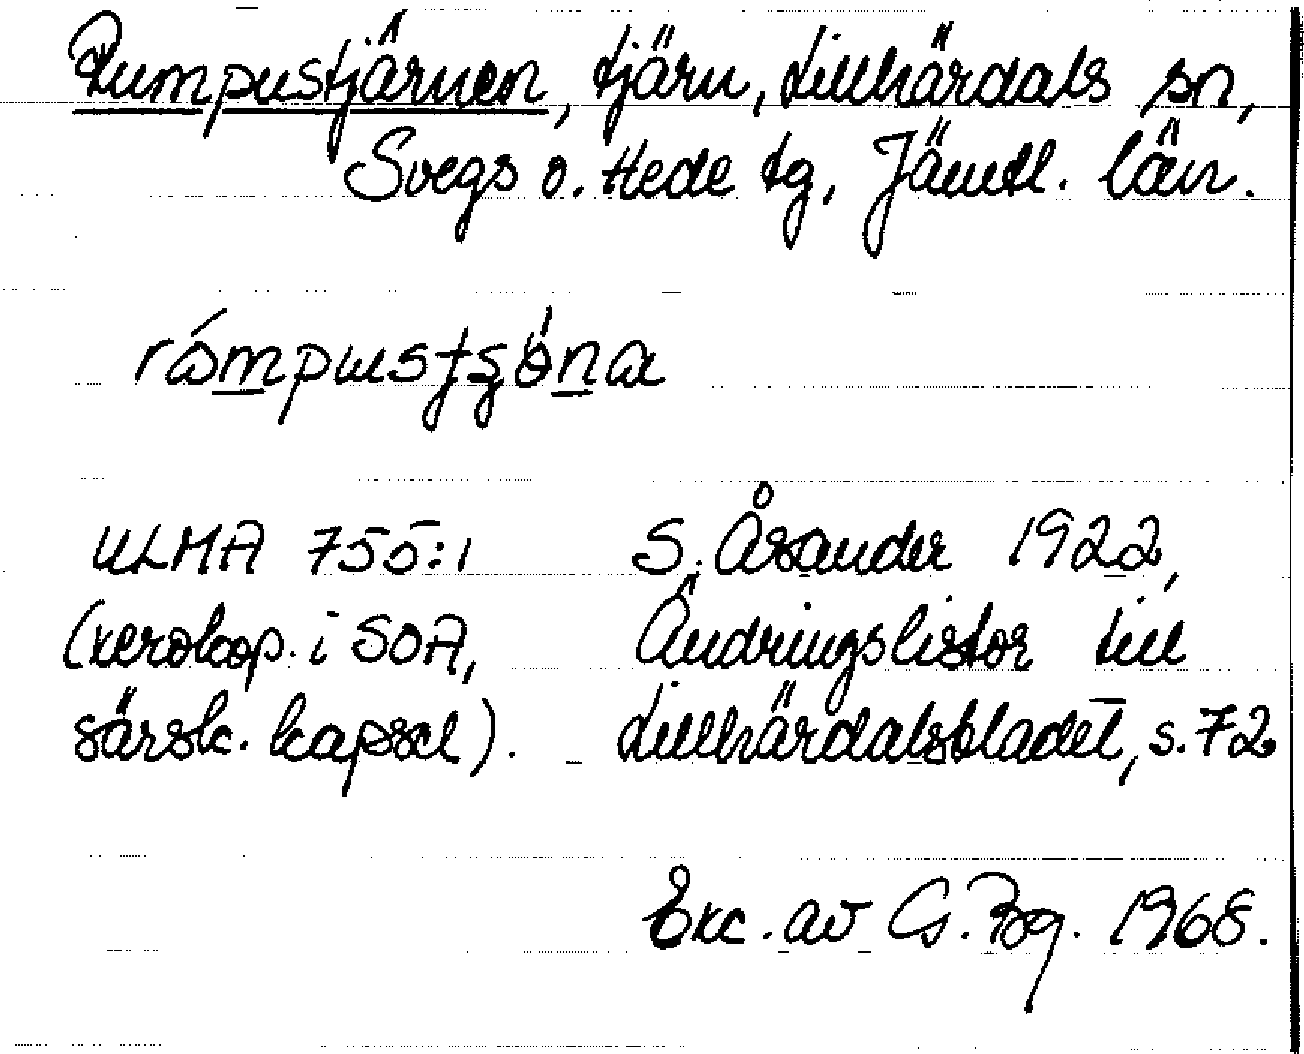 Rumpustjärnen, tjärn, Lillhärdals sn,
Svegs o. Hede tg, Jämtl. län.
rómpusɟʂöna
ULMA 755:1 S. Åsander 1922,
(xerokop. i SOA, Ändringslistor till
särsk. kapsel). Lillhärdalsbladet, s. 72
Exc. av G. Bg. 1968.